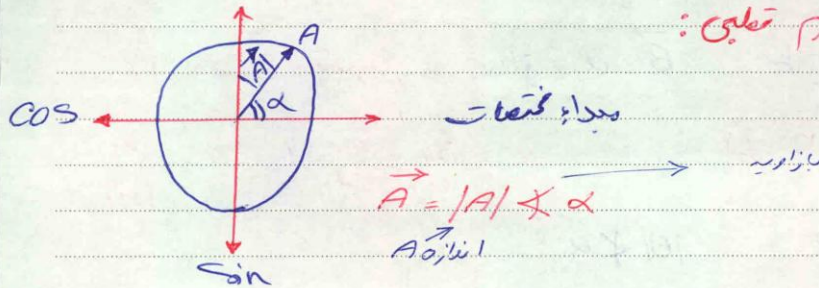 قطبی :
A
|A|
α
COS
مبداء مختصات
A = |A| ∡ α
اندازه A
Sin